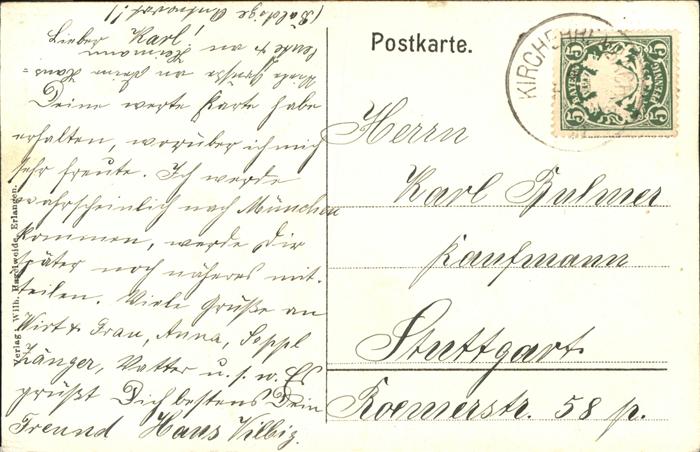 Postkarte.
KIRCHEHR
5 BAYERN 5
Lieber Karl!
Deine werte Karte habe
erhalten, worüber ich mich
sehr freute. Ich werde
wahrscheinlich nach München
kommen, werde Dir
später noch näheres mit-
teilen. Viele Grüße an
Wirt & Frau, Anna, Seppl
Zänger, Vatter u. s. w. Es
grüßt Dich bestens Dein
Freund Hans Vilbig.
Viele Grüße an Deine Haus-
leute & an Hermann
(Baldige Antwort!!)
Herrn
Karl Bulmer
Kaufmann
Stuttgart
Roemerstr. 58 p.
Verlag Wilh. Hagelweide, Erlangen.